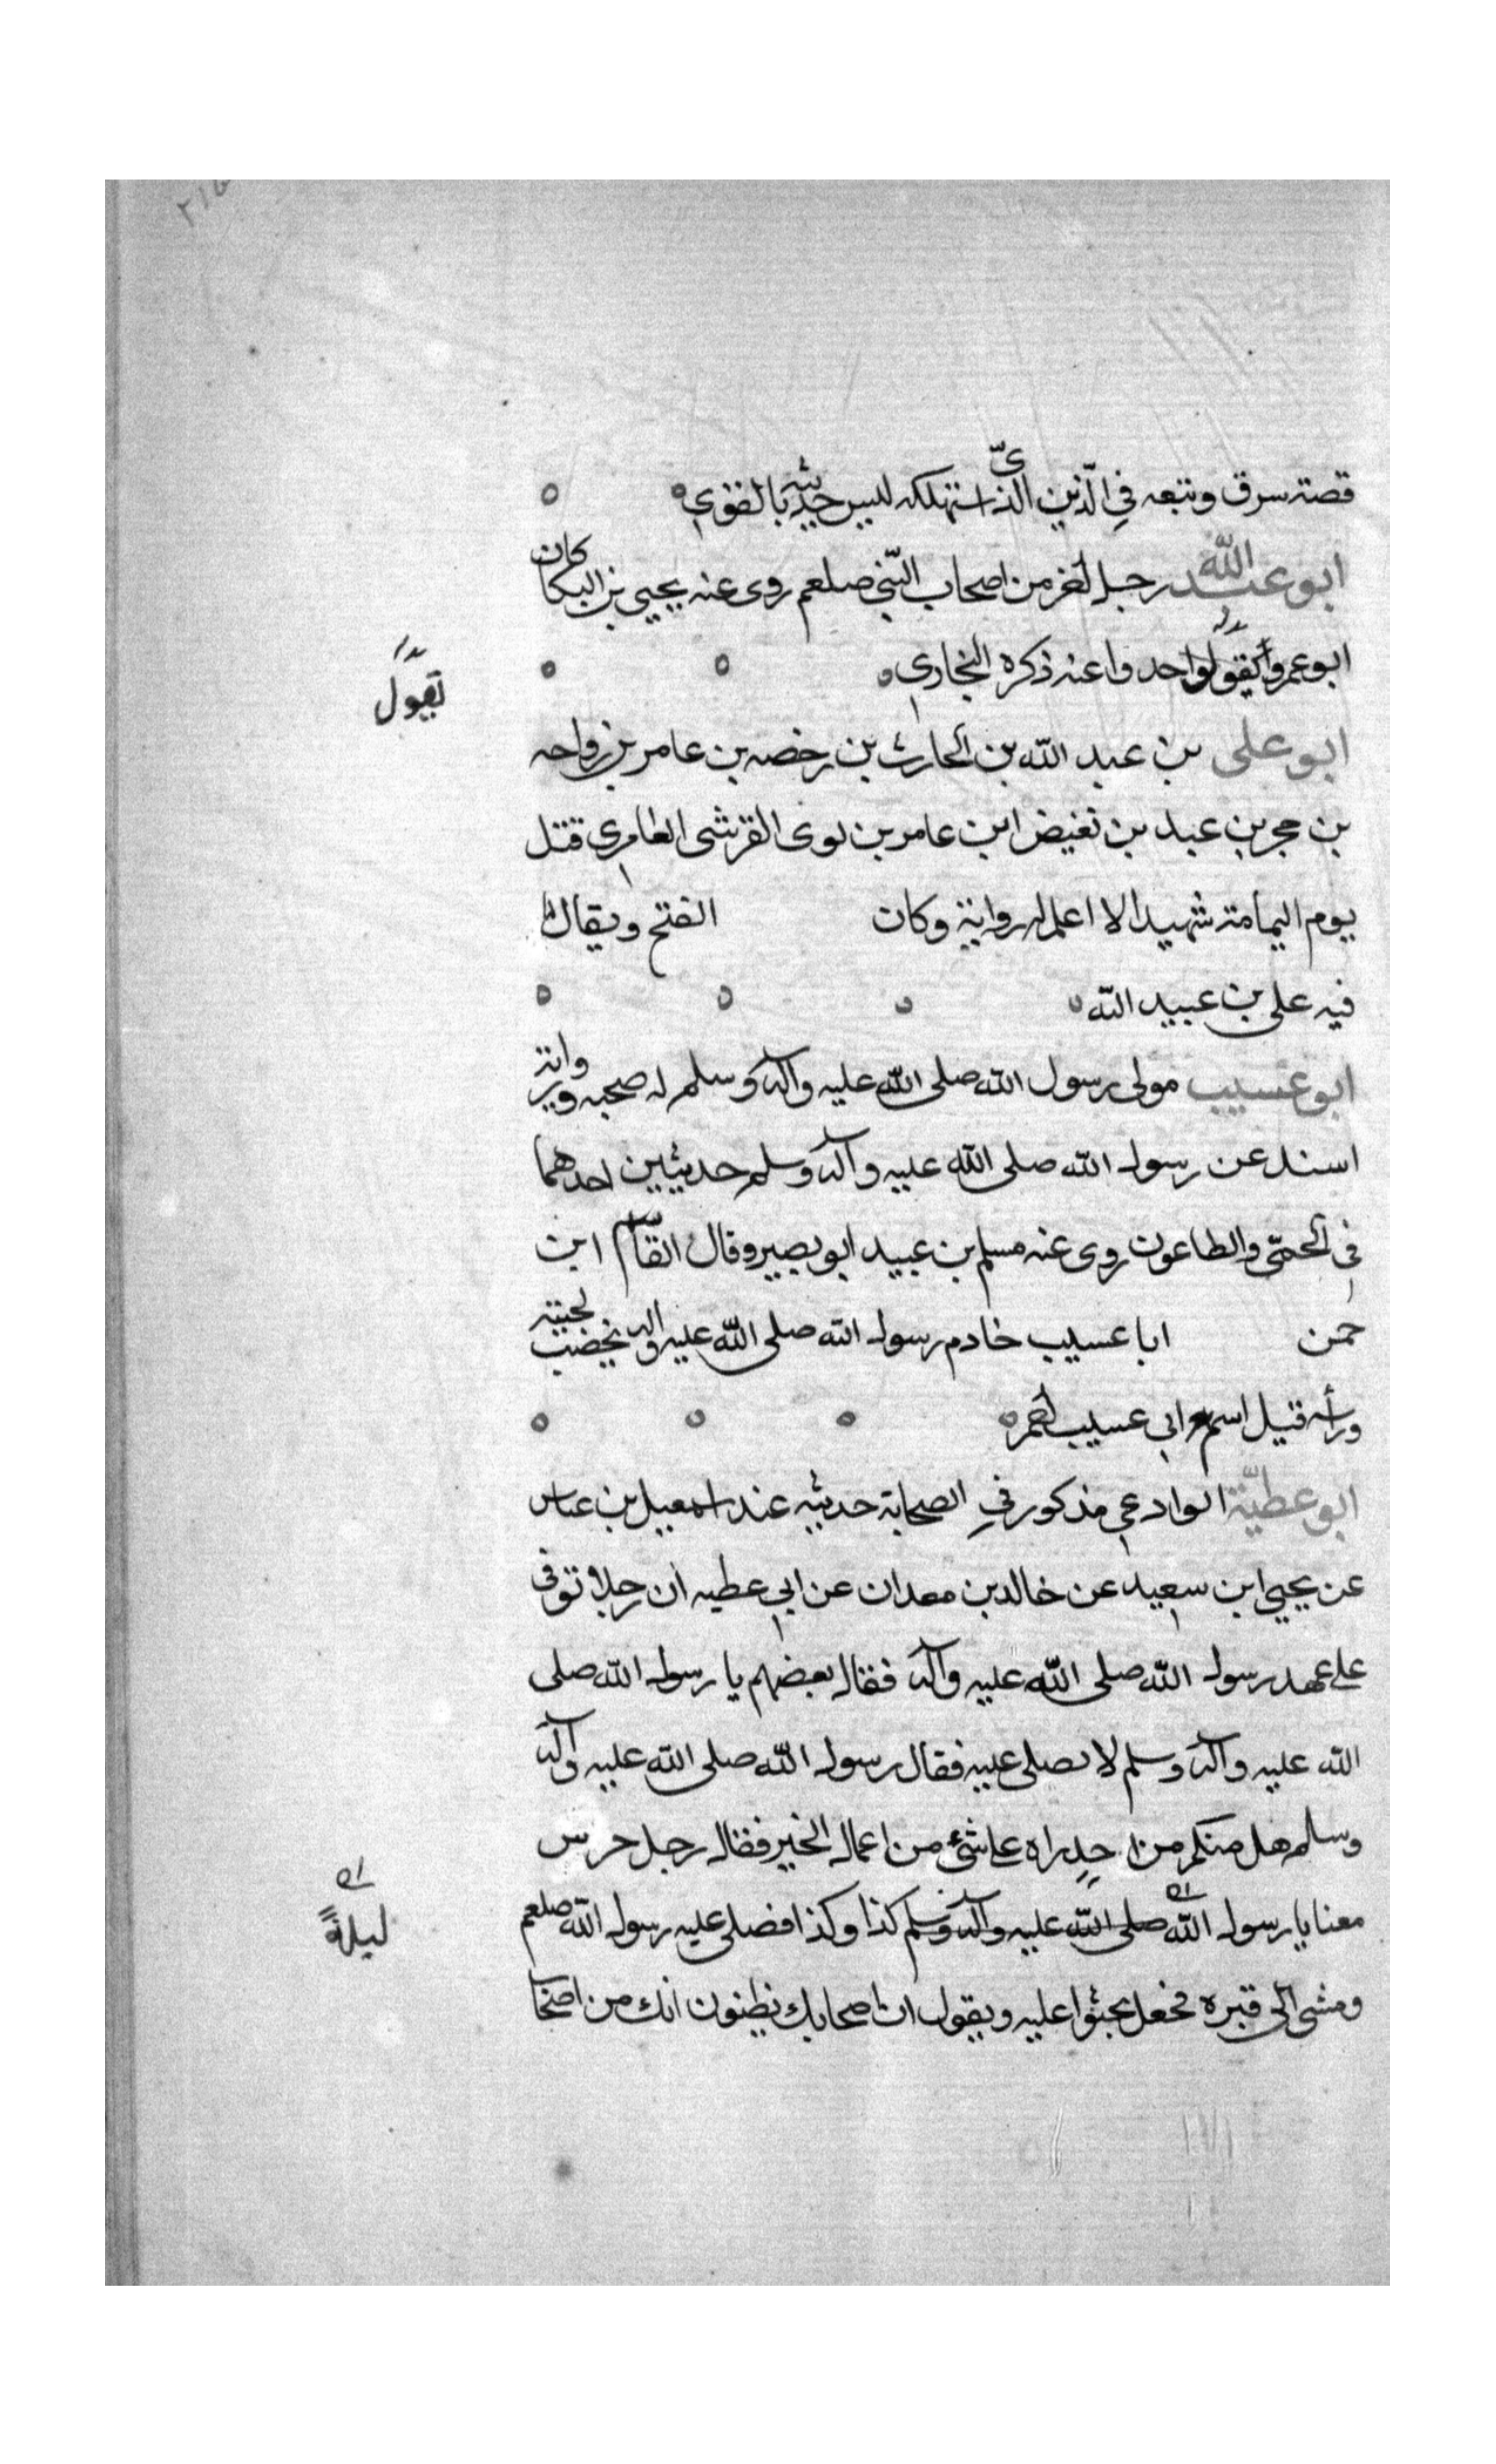 قصة سرق وتبعه في الدين الذى استهلكه ليس حديثه بالقوي
ابو عبد الله رجل اخر من اصحاب النبي صلعم روى عنه يحيى بن البكا كان
ابو عمر واحد وا عنه ذكره البخاري
يقول
ابو على بن عبد الله بن الحارث بن رخصه بن عامر بن رواحه
بن حجر بن عبد بن تغيض ابن عامر بن لوى القرشى العامري قتل
يوم اليمامة شهيدا لا اعلم له رواية وكان الفتح ويقال
فيه على بن عبيد الله
ابو عسيب مولى رسول الله صلى الله عليه وآله وسلم له صحبه ورواية
اسند عن رسول الله صلى الله عليه وآله وسلم حديثين احدهما
في الحمّى والطاعون روى عنه مسلم بن عبيد ابو بصير وقال القاسم ابن
حمن ابا عسيب خادم رسول الله صلى الله عليه واله يخضب لحيته
ورأسه قيل اسم ابي عسيب احمر
ابو عطيّة الوادعي مذكور في الصحابة حديثه عند اسمعيل بن عباس
عن يحيى ابن سعيد عن خالد بن معدان عن ابي عطيه ان رجلا توفى
على عهد رسول الله صلى الله عليه وآله فقال بعضهم يا رسول الله صلى
الله عليه وآله وسلم لا تصلى عليه فقال رسول الله صلى الله عليه وآله
وسلم هل منكم من احد راه على شئ من اعمال الخير فقال رجل حرس
معنا يا رسول الله صلى الله عليه وآله وسلم كذا وكذا فصلى عليه رسول الله صلعم
ليلةً
ومشى الى قبره فجعل يحثوا عليه ويقول ان اصحابك يظنون انك من اصحا